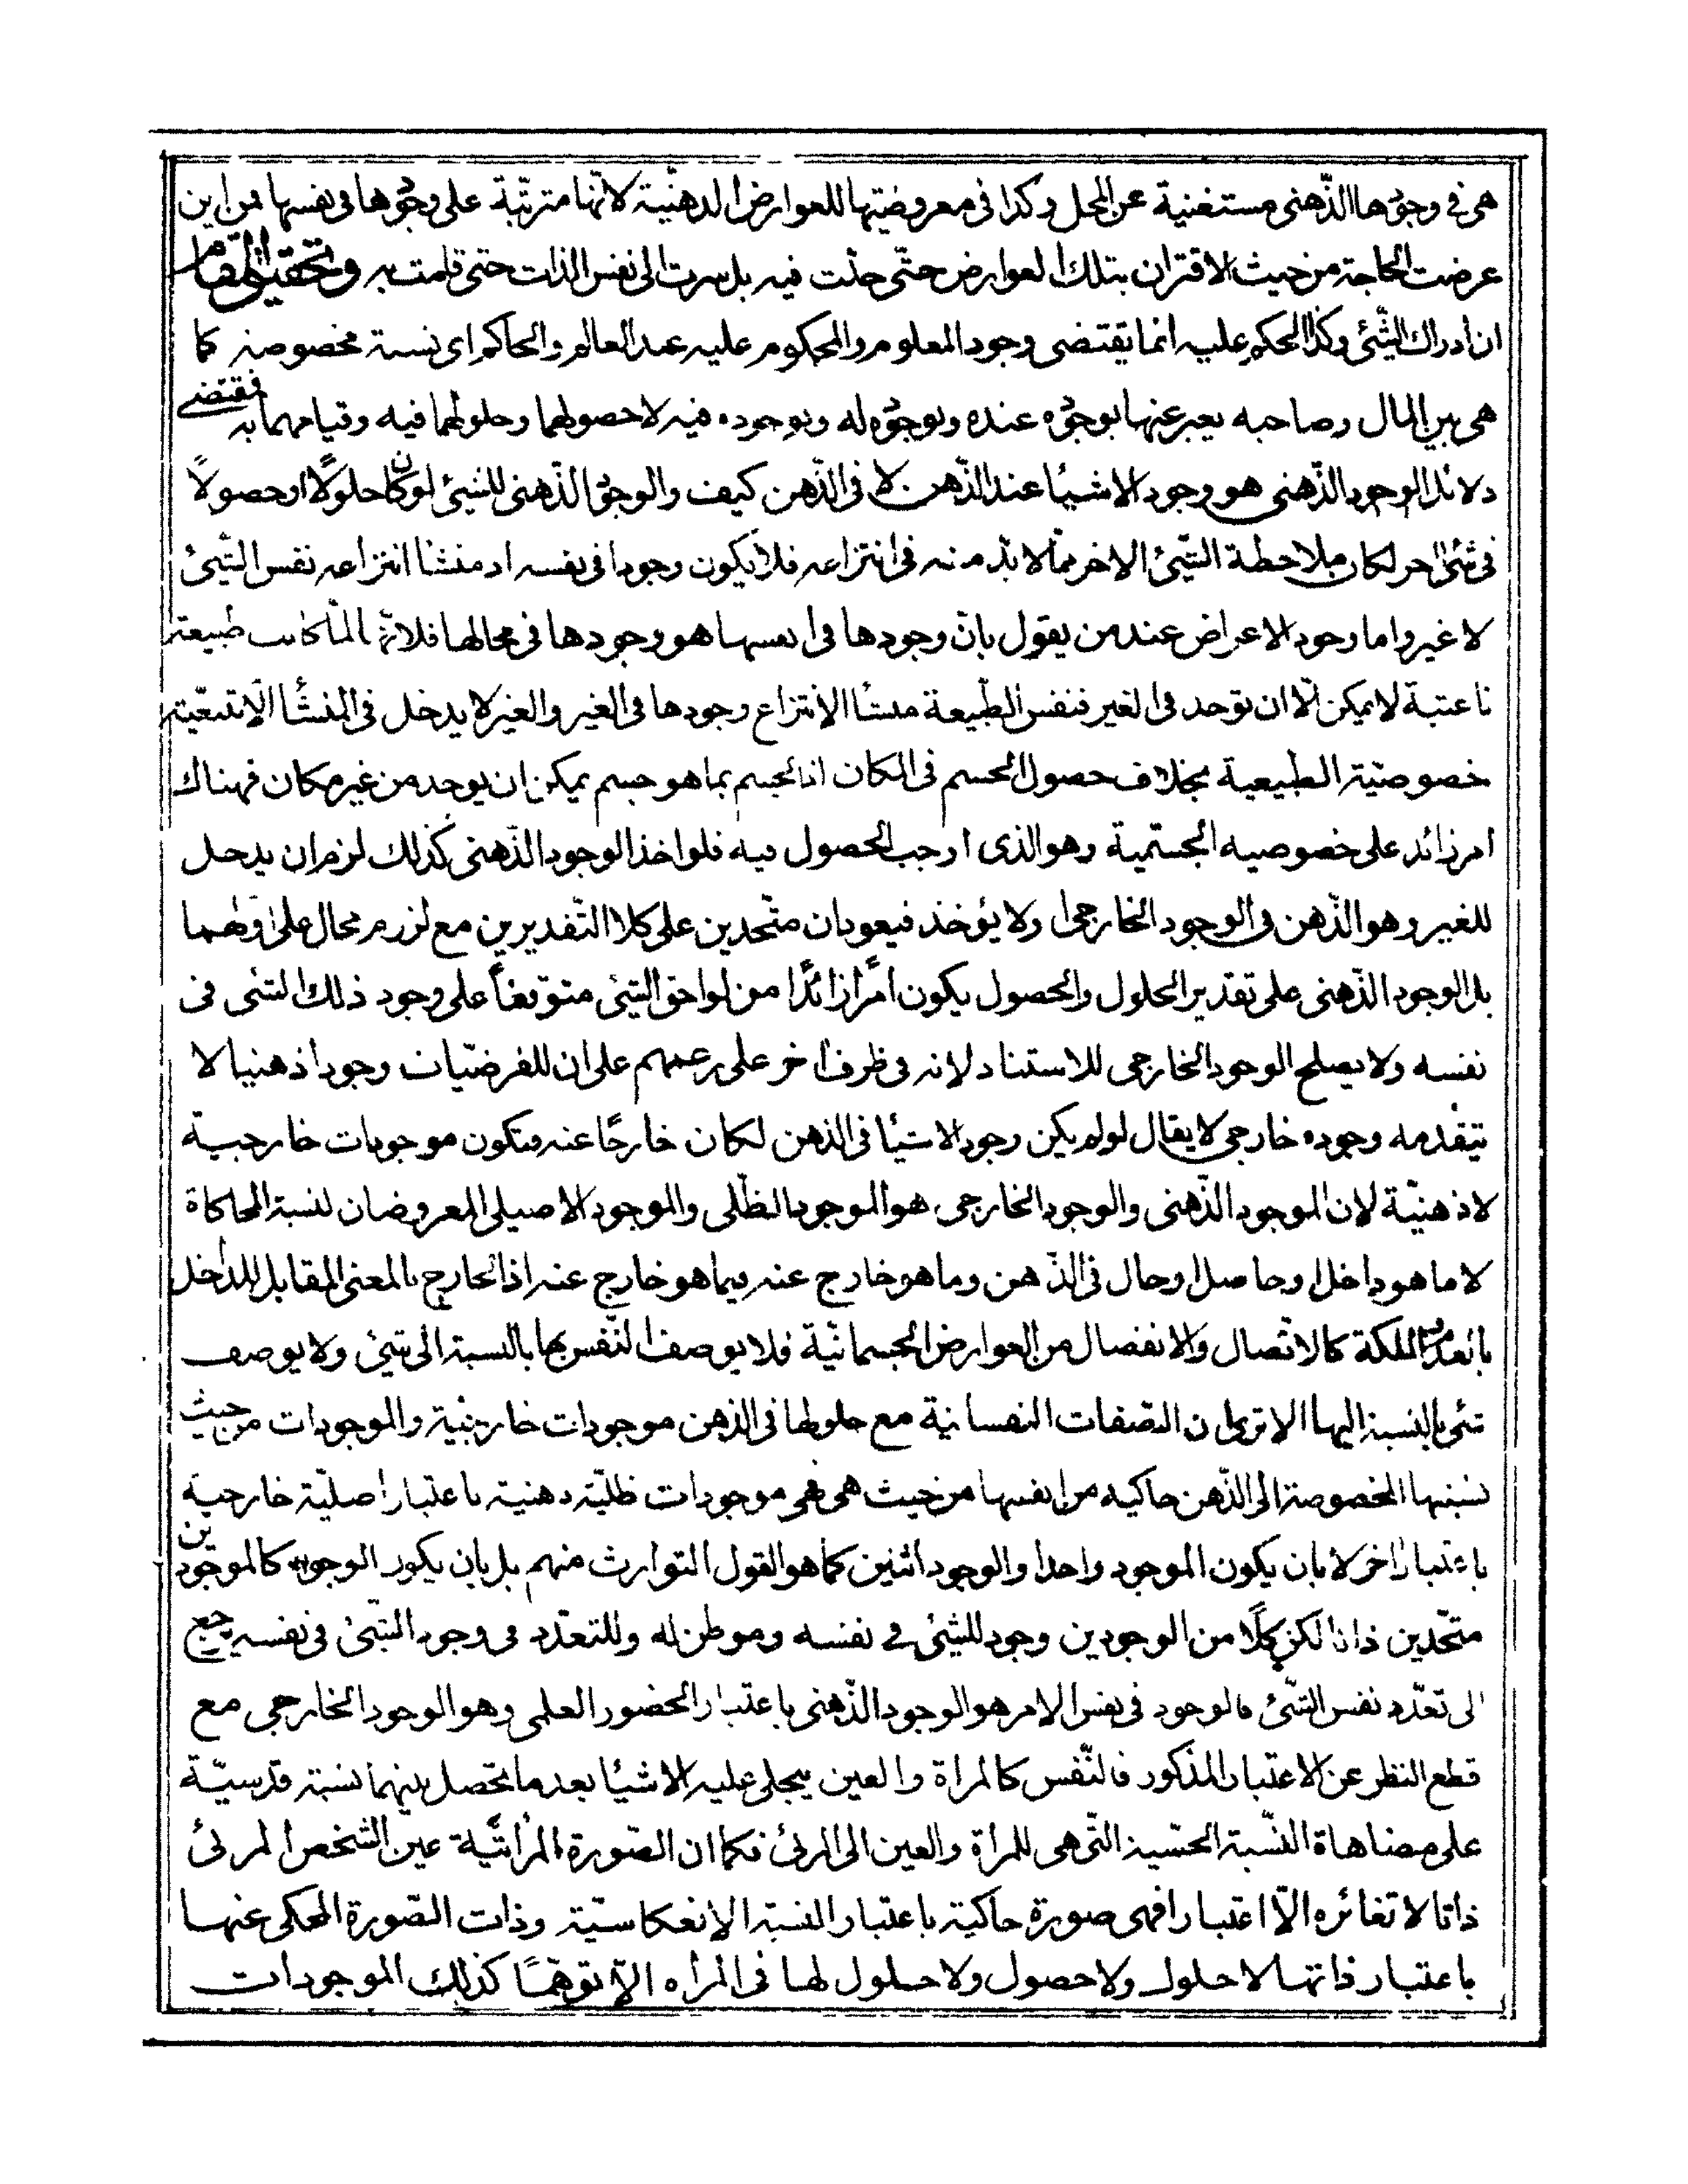 هى فى وجودها الذّهنى مستغنية عن المحل وكذا فى معروضيتها للعوارض الذهنيّة لانّها مترتّبة على وجودها فى نفسها فمن اين
عرضت الحاجة من حيث الاقتران بتلك العوارض حتّى حلّت فيه بل سرت الى نفس الذات حتى قامت به وتحقيق المقام
ان ادراك الشّئ وكذا الحكم عليه انما يقتضى وجود المعلوم والمحكوم عليه عند العالم والحاكم اى نسبة مخصوصة كما
هى بين المال وصاحبه يعبر عنها بوجوده عنده وبوجوده له وبوجوده فيه لا حصولهما وحلولهما فيه وقيامهما به فمقتضى
دلائل الوجود الذّهنى هو وجود الاشيا عند الذّهن لا فى الذّهن كيف والوجود الذّهنى للشئ لو كان حلولاً او حصولاً
فى شئ اخر لكان ملاحظة الشّئ الاخر ممّا لا بدّ منه فى انتزاعه فلا يكون وجودا فى نفسه اذ منشا انتزاعه نفس الشّئ
لا غير واما وجود الاعراض عند من يقول بانّ وجودها فى انفسها هو وجودها فى محالها فلانّها لمّا كانت طبيعة
ناعتية لا يمكن الّا ان توجد فى الغير فنفس الطّبيعة منشا الانتزاع وجودها فى الغير والغير لا يدخل فى المنشأ الّا بتبعيّة
خصوصيّة الطبيعية بخلاف حصول الجسم فى المكان اذ الجسم بما هو جسم يمكن ان يوجد من غير مكان فهناك
امر زائد على خصوصيه الجسميّة وهو الذى اوجب الحصول فيه فلو اخذ الوجود الذّهنى كذلك لزم ان يدخل
للغير وهو الذّهن فى الوجود الخارجى او لا يؤخذ فيعودان متّحدين على كلا التّقديرين مع لزوم محال على اولهما
بل الوجود الذّهنى على تقدير الحلول والحصول يكون أمرًا زائدًا من لواحق الشئ متوقفاً على وجود ذلك الشئ فى
نفسه ولا يصلح الوجود الخارجى للاستناد لانه فى ظرف اخر على زعمهم على ان للفرضيّات وجودا ذهنيا لا
يتقدمه وجوده خارجى لا يقال لو لم يكن وجود الاشيا فى الذهن لكان خارجًا عنه فتكون موجودات خارجية
لا ذهنيّة لان الموجود الذّهنى والوجود الخارجى هو الموجود الظّلى والموجود الاصيلى المعروضان لنسبة المحاكاة
لا ما هو داخل او حاصل او حال فى الذّهن وما هو خارج عنه فيما هو خارج عنه اذ الخارج بالمعنى المقابل للداخل
بالعدم والملكة كالاتّصال والانفصال من العوارض الجسمانيّة فلا يوصف النّفس بها بالنسبة الى شئ ولا يوصف
شئ بالنسبة اليها الا ترى ان الصّفات النفسانية مع حلولها فى الذهن موجودات خارجيّة والموجودات من حيث
نسبتها المخصوصة الى الذّهن حاكية من انفسها من حيث هى هى موجودات ظليّة ذهنية باعتبار اصليّة خارجية
باعتبار اخر لا بان يكون الموجود واحدا والوجود اثنين كما هو القول التوارث منهم بل بان يكون الوجود كالموجودين
متّحدين ذاتا لكن كلًّا من الوجودين وجود للشئ فى نفسه وموطن له وللتعدّد فى وجود الشّئ فى نفسه يرجع
الى تعدّد نفس الشّئ فالوجود فى نفس الامر هو الوجود الذّهنى باعتبار الحضور العلمى وهو الوجود الخارجى مع
قطع النظر عن الاعتبار المذكور فالنّفس كالمراة والعين يتجلى عليه الاشيا بعد ما تحصل بينهما نسبة قدسيّة
على مضاهاة النّسبة الحسّية الّتى هى للمراة والعين الى المرئى فكما ان الصّورة المرأتيّة عين الشخص المرئى
ذاتا لا تغائره الّا اعتبارا فهى صورة حاكية باعتبار النسبة الانعكاسيّة وذات الصّورة المحكى عنها
باعتبار ذاتها لا حلول ولا حصول ولا حلول لها فى المراه الّا توهّمًا كذلك الموجودات